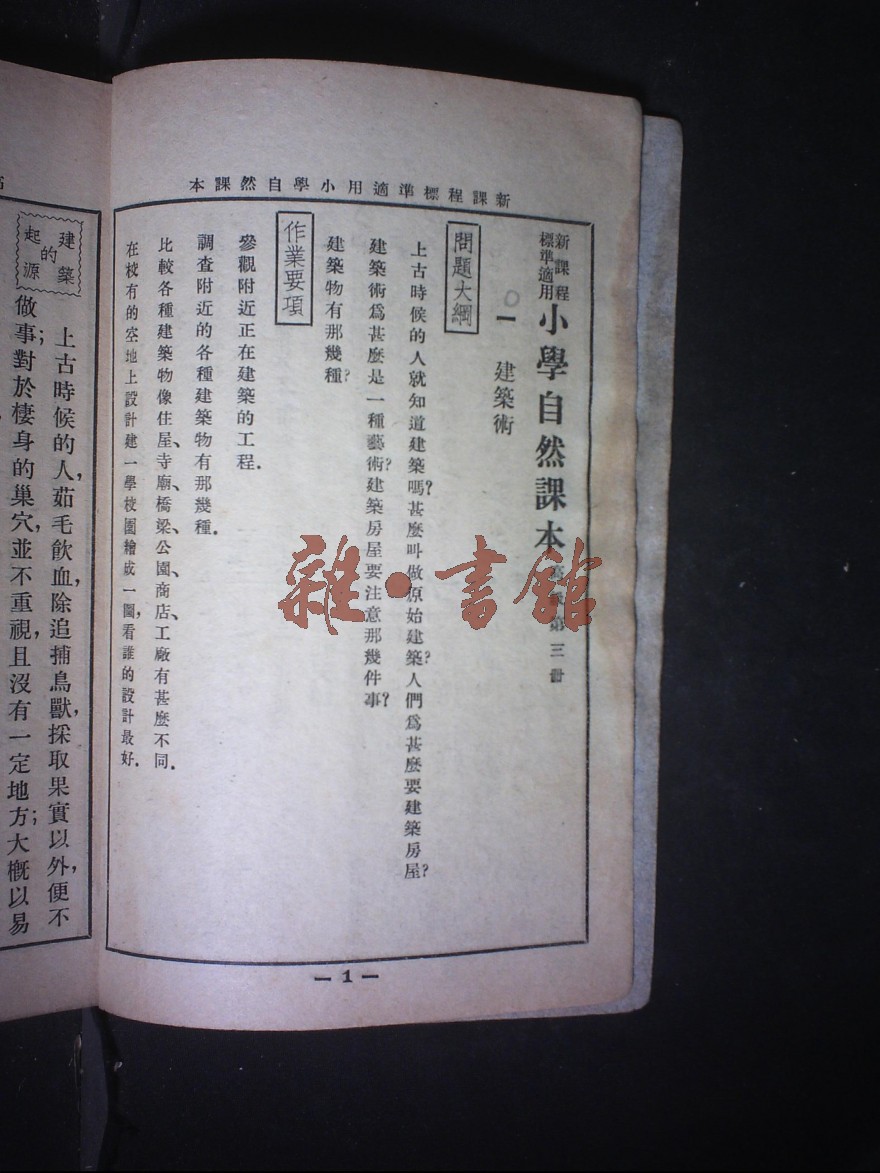 新課程標準適用小學自然課本
新課程
標準適用
小學自然課本
第三冊
一 建築術
問題大綱
上古時候的人就知道建築嗎?甚麼叫做原始建築?人們爲甚麼要建築房屋?
建築術爲甚麼是一種藝術?建築房屋要注意那幾件事?
建築物有那幾種?
作業要項
參觀附近正在建築的工程.
調查附近的各種建築物有那幾種.
比較各種建築物像住屋、寺廟、橋梁、公園、商店、工廠有甚麼不同.
在校有的空地上設計建一學校園繪成一圖,看誰的設計最好.
— 1 —
建築
的
起源
上古時候的人,茹毛飲血,除追捕鳥獸,採取果實以外,便不
做事;對於棲身的巢穴,並不重視,且沒有一定地方;大概以易
雜·書館